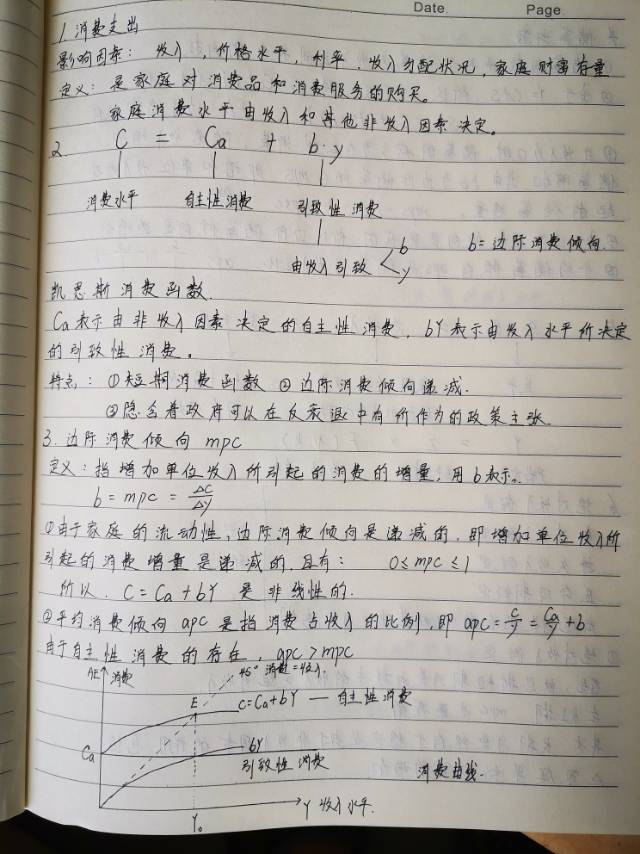 Date. Page.
1 消费支出
影响因素：收入，价格水平，利率，收入分配状况，家庭财富存量
定义：是家庭对消费品和消费服务的购买。
家庭消费水平由收入和其他非收入因素决定。
2. C = Ca + b·y
消费水平 自主性消费 引致性消费
由收入引致 b y b=边际消费倾向.
凯恩斯消费函数.
Ca表示由非收入因素决定的自主性消费，bY表示由收入水平所决定
的引致性消费。
特点：①短期消费函数 ②边际消费倾向递减.
③隐含着政府可以在反衰退中有所作为的政策主张.
3. 边际消费倾向 mpc
定义：指增加单位收入所引起的消费的增量，用b表示。
b = mpc = ΔC/Δy
①由于家庭的流动性，边际消费倾向是递减的，即增加单位收入所
引起的消费增量是递减的，且有： 0≤mpc≤1
所以，C=Ca+bY 是非线性的.
②平均消费倾向 apc 是指消费占收入的比例，即 apc=C/y=Ca/y+b
由于自主性消费的存在，apc>mpc
AE 消费 45° 消费=收入
E C=Ca+bY — 自主性消费
Ca bY
引致性消费 消费曲线.
Y₀ Y 收入水平.